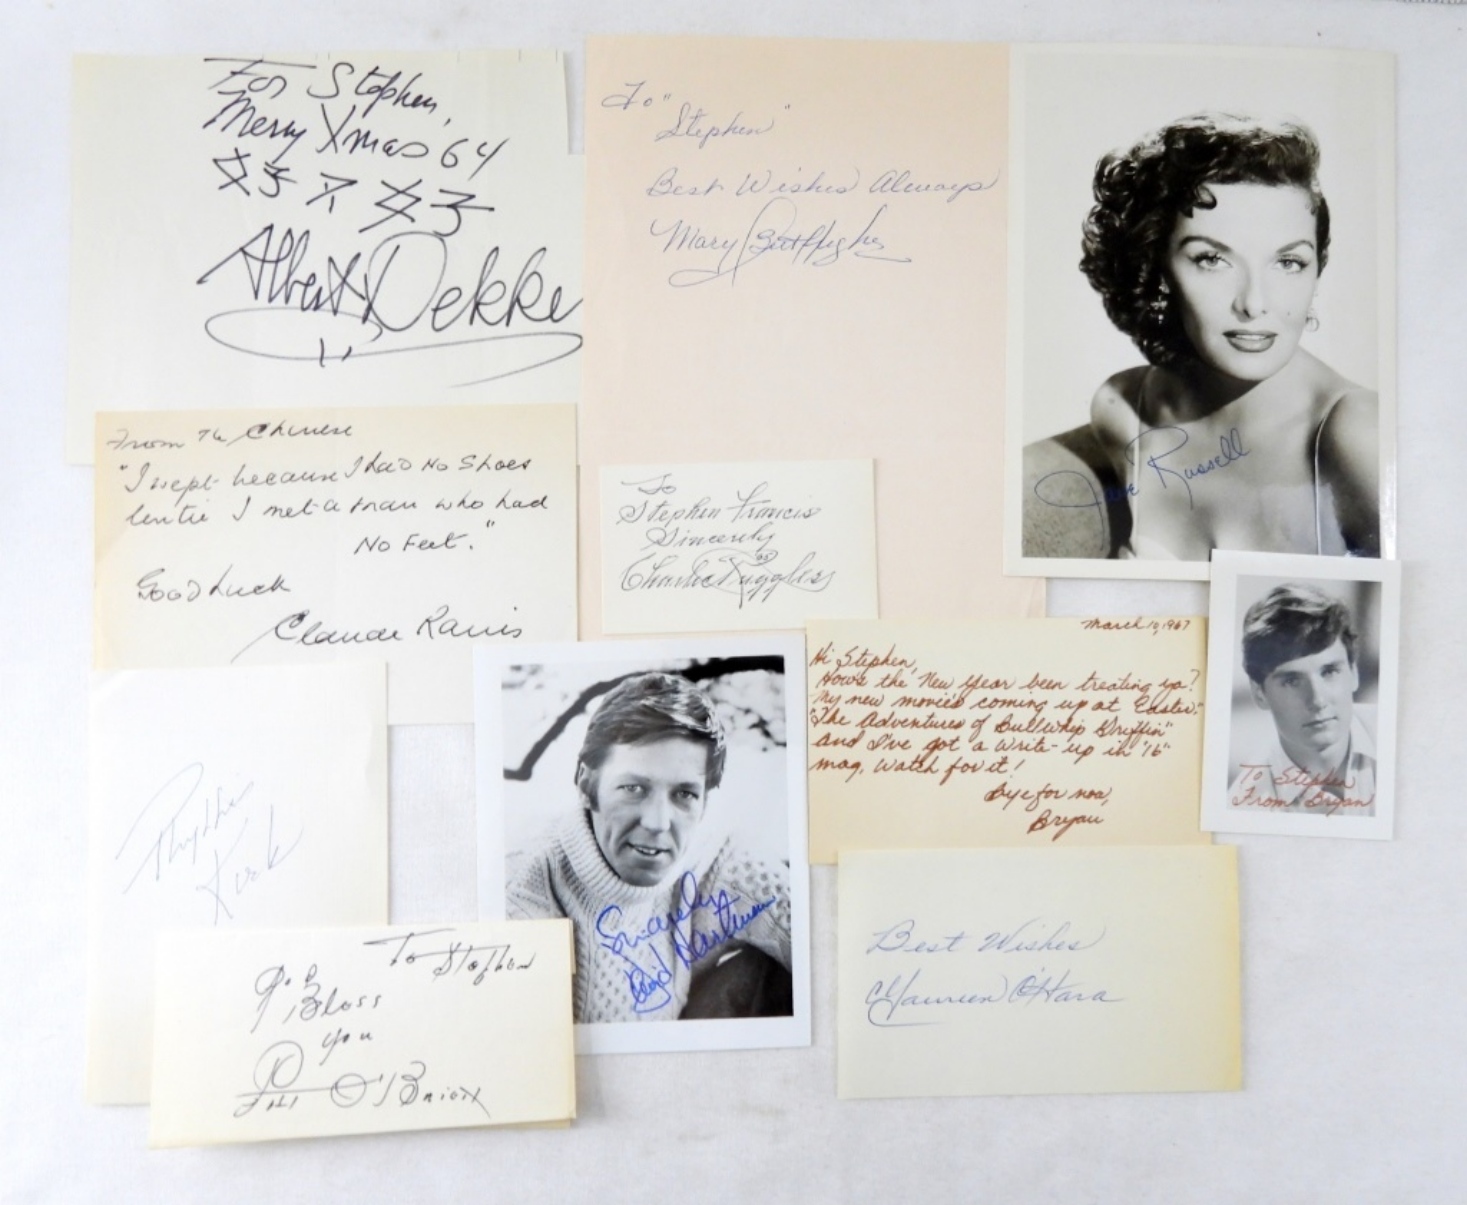 For Stephen,
Merry Xmas '64
Albert Dekker
To "Stephen"
Best Wishes Always
Mary
Jane Russell
From The Chinese
"I wept because I had No Shoes
I met a man who had
No Feet."
Good Luck
Claude Rains
To
Stephen Francis
Sincerely
Charlie Ruggles
March 10, 1967
Hi Stephen,
Hows the New Year been treating ya?
My new movie's coming up at Easter,
"The Adventures of Bullwhip Griffin"
and I've got a write-up in "16"
mag. Watch for it!
Bye for now,
Bryan
To Stephen
From Bryan
Phyllis
Kirk
Sincerely
Hartman
To Stephen
Bless
you
O'Brien
Best Wishes
Maureen O'Hara